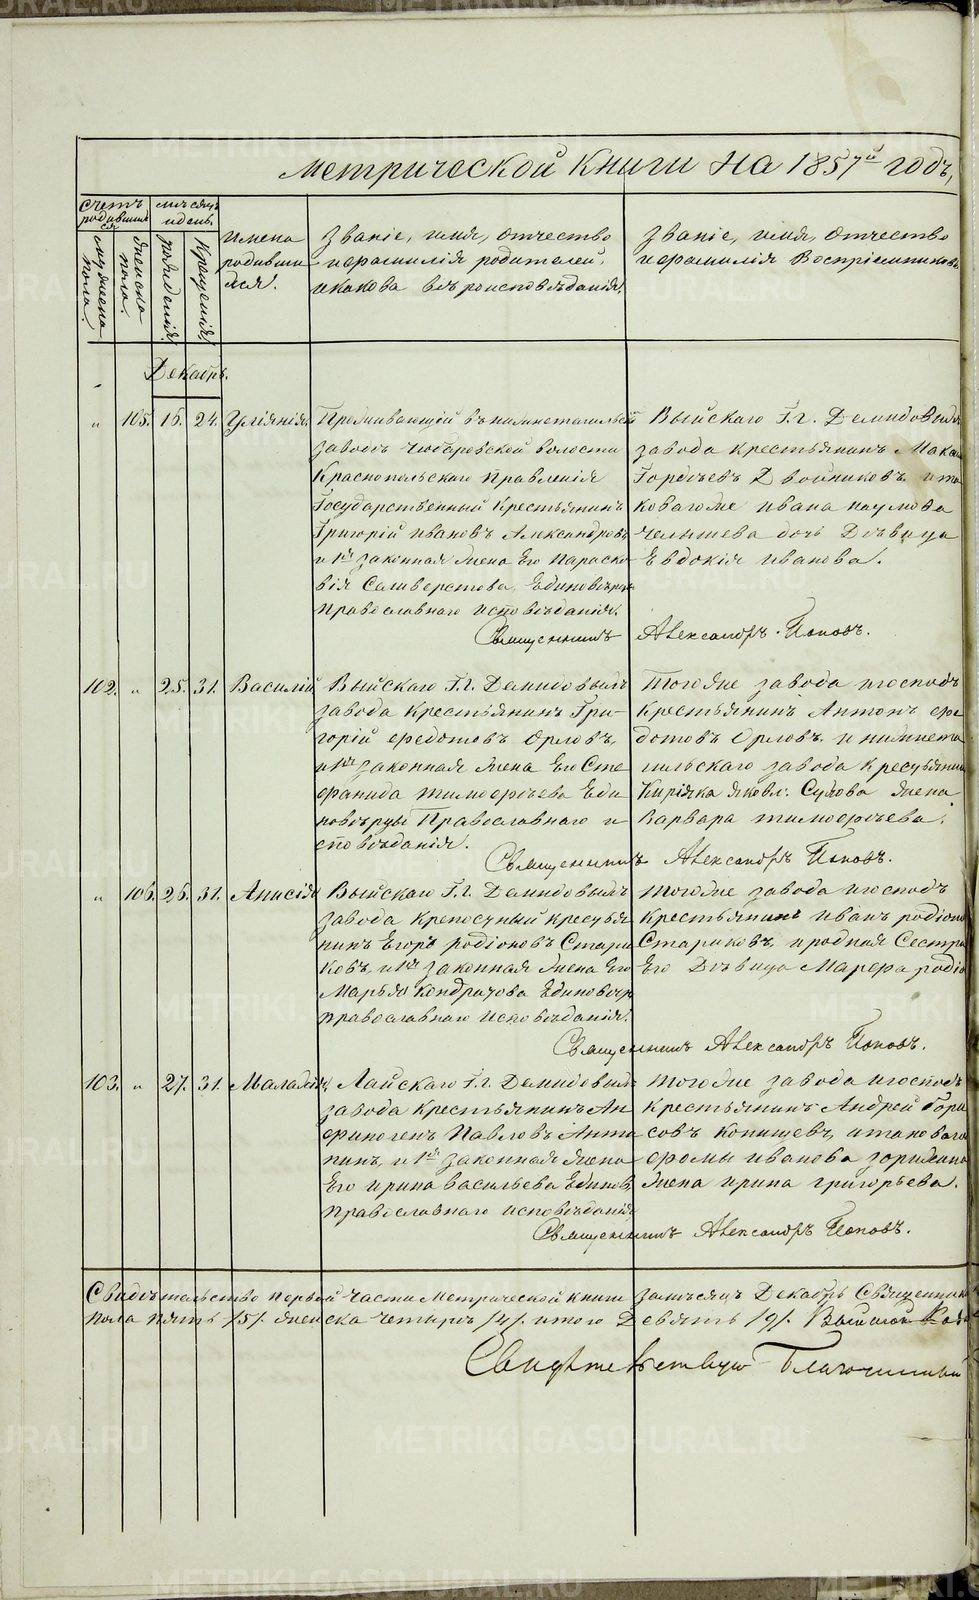 метрической книги на 1857й годъ,
Счетъ родившихся
мужеска пола.
женска пола.
месяцъ и день.
рожденія.
крещенія.
Имена родивши-
хся.
Званіе, имя, отчество
и фамилія родителей,
и какова вѣроисповѣданія.
Званіе, имя, отчество
и фамилія Воспріемниковъ
Декабрь.
" 105. 15. 24. Уліянія
Проживающій въ нижнетагильск
заводѣ Чюбаровской волости
Краснопольскаго Правленія
Государственный Крестьянинъ
Григорій ивановъ Александровъ
и 1я законная жена Его Параско
вія Селиверстова Единовѣрцы
Православнаго исповѣданія.
Выйскаго Г.г. Демидовыхъ
завода крестьянинъ Макаръ
Гордѣевъ Двойниковъ и та
коваго же ивана наумова
Челышева дочь Дѣвица
Евдокія иванова.
Священникъ Александръ Поповъ.
102. " 25. 31. Василій
Выйскаго Г.г. Демидовыхъ
завода Крестьянинъ Гри-
горій федотовъ Орловъ,
и 1я законная жена Его Сте
фанида тимофѣева Еди
новѣрцы Православнаго и
сповѣданія.
Тогоже завода и господъ
Крестьянинъ Антонъ фе
дотовъ Орловъ и нижнета
гильскаго завода Крестьянин
Киріяка яковл. Сулова жена
Варвара тимофѣева.
Священникъ Александръ Поповъ.
" 106. 26. 31. Анисія
Выйскаго Г.г. Демидовыхъ
завода Крепостный крестья
нинъ Егоръ родіоновъ Стари
ковъ, и 1я законная жена Его
Марья Кондратова Единовѣрц
православнаго исповѣданія.
тогоже завода и господъ
Крестьянинъ иванъ родіоно
Стариковъ, и родная Сестра
Его Дѣвица Марфа родіо
Священникъ Александръ Поповъ.
103. " 27. 31. Маламій
Лайскаго Г.г. Демидовыхъ
завода Крестьянинъ Ан
финогенъ Павловъ Анти
пинъ, и 1я законная жена
Его ирина васильева Единов,
Православнаго исповѣданія
тогоже завода и господъ
Крестьянинъ Андрей Бори
совъ Копищевъ, и таковаго
фомы иванова
жена ирина григорьева.
Священникъ Александръ Поповъ.
Свидѣтельство первой части Метрической книги за мѣсяцъ Декабрь Священник
пола пять /5/. женска четыре /4/. итого Девять /9/.
Свидѣтельствую Благочинный